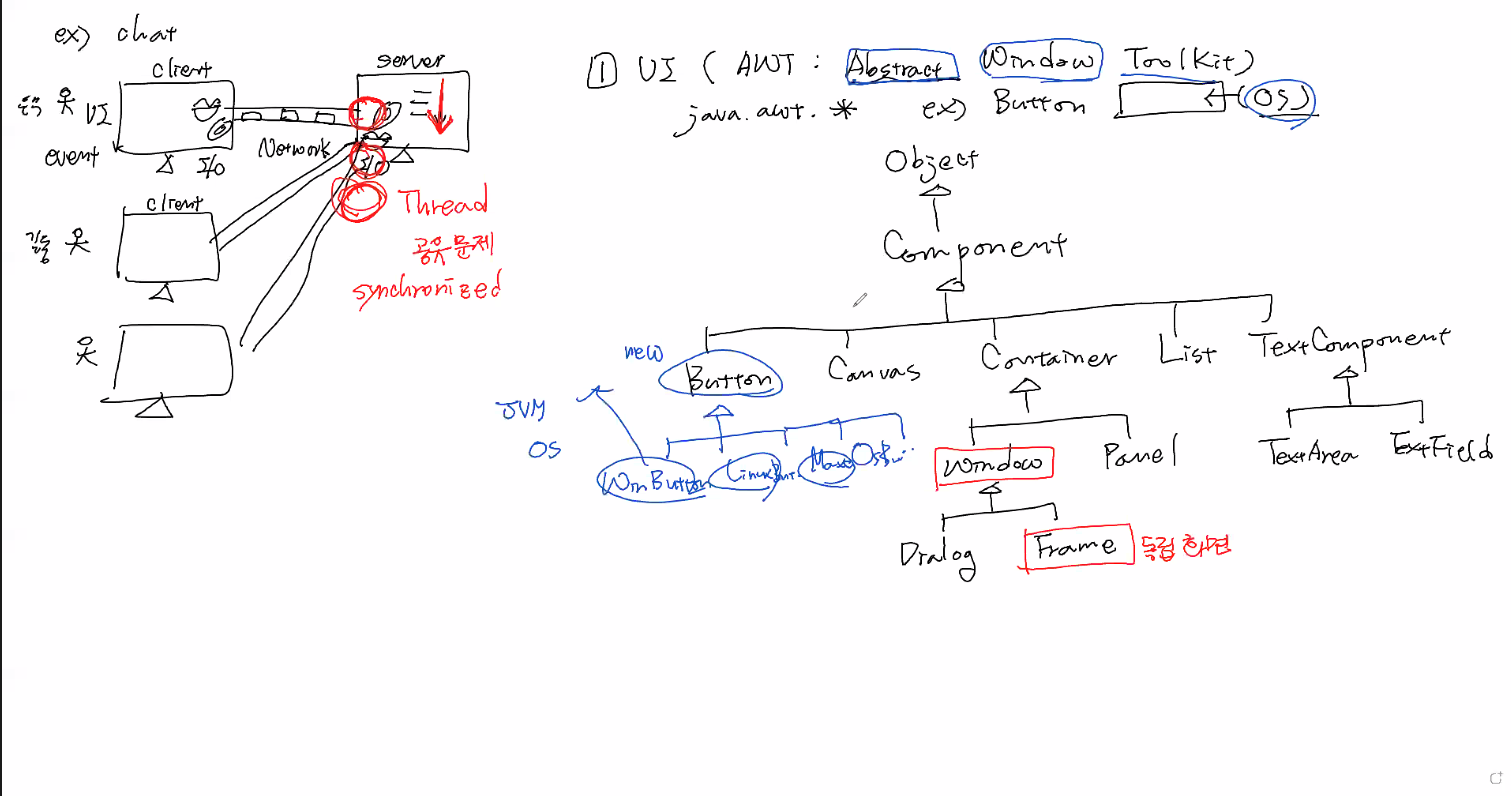 ex) chat
client
server
UI
event
I/O
Network
I/O
client
길동
Thread
공유문제
synchronized
① UI ( AWT : Abstract Window ToolKit)
java.awt.* ex) Button (OS)
Object
Component
new
Button
Canvas
Container
List
TextComponent
JVM
OS
WinButton
LinuxBut..
Window
Panel
TextArea
TextField
Dialog
Frame
독립화면